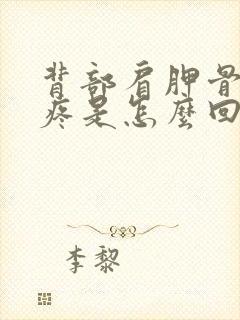 背部肩胛骨
疼是怎麼回
李黎